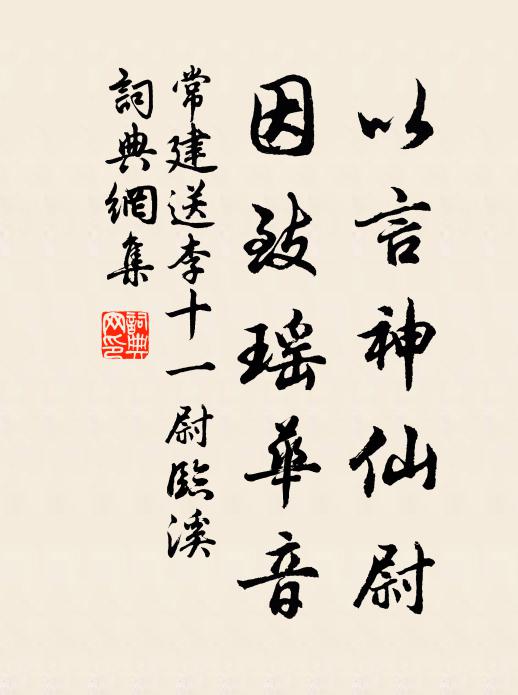 以言神仙尉
因致瑶華音
常建送李十一尉臨溪
詞典網集
詞典網印